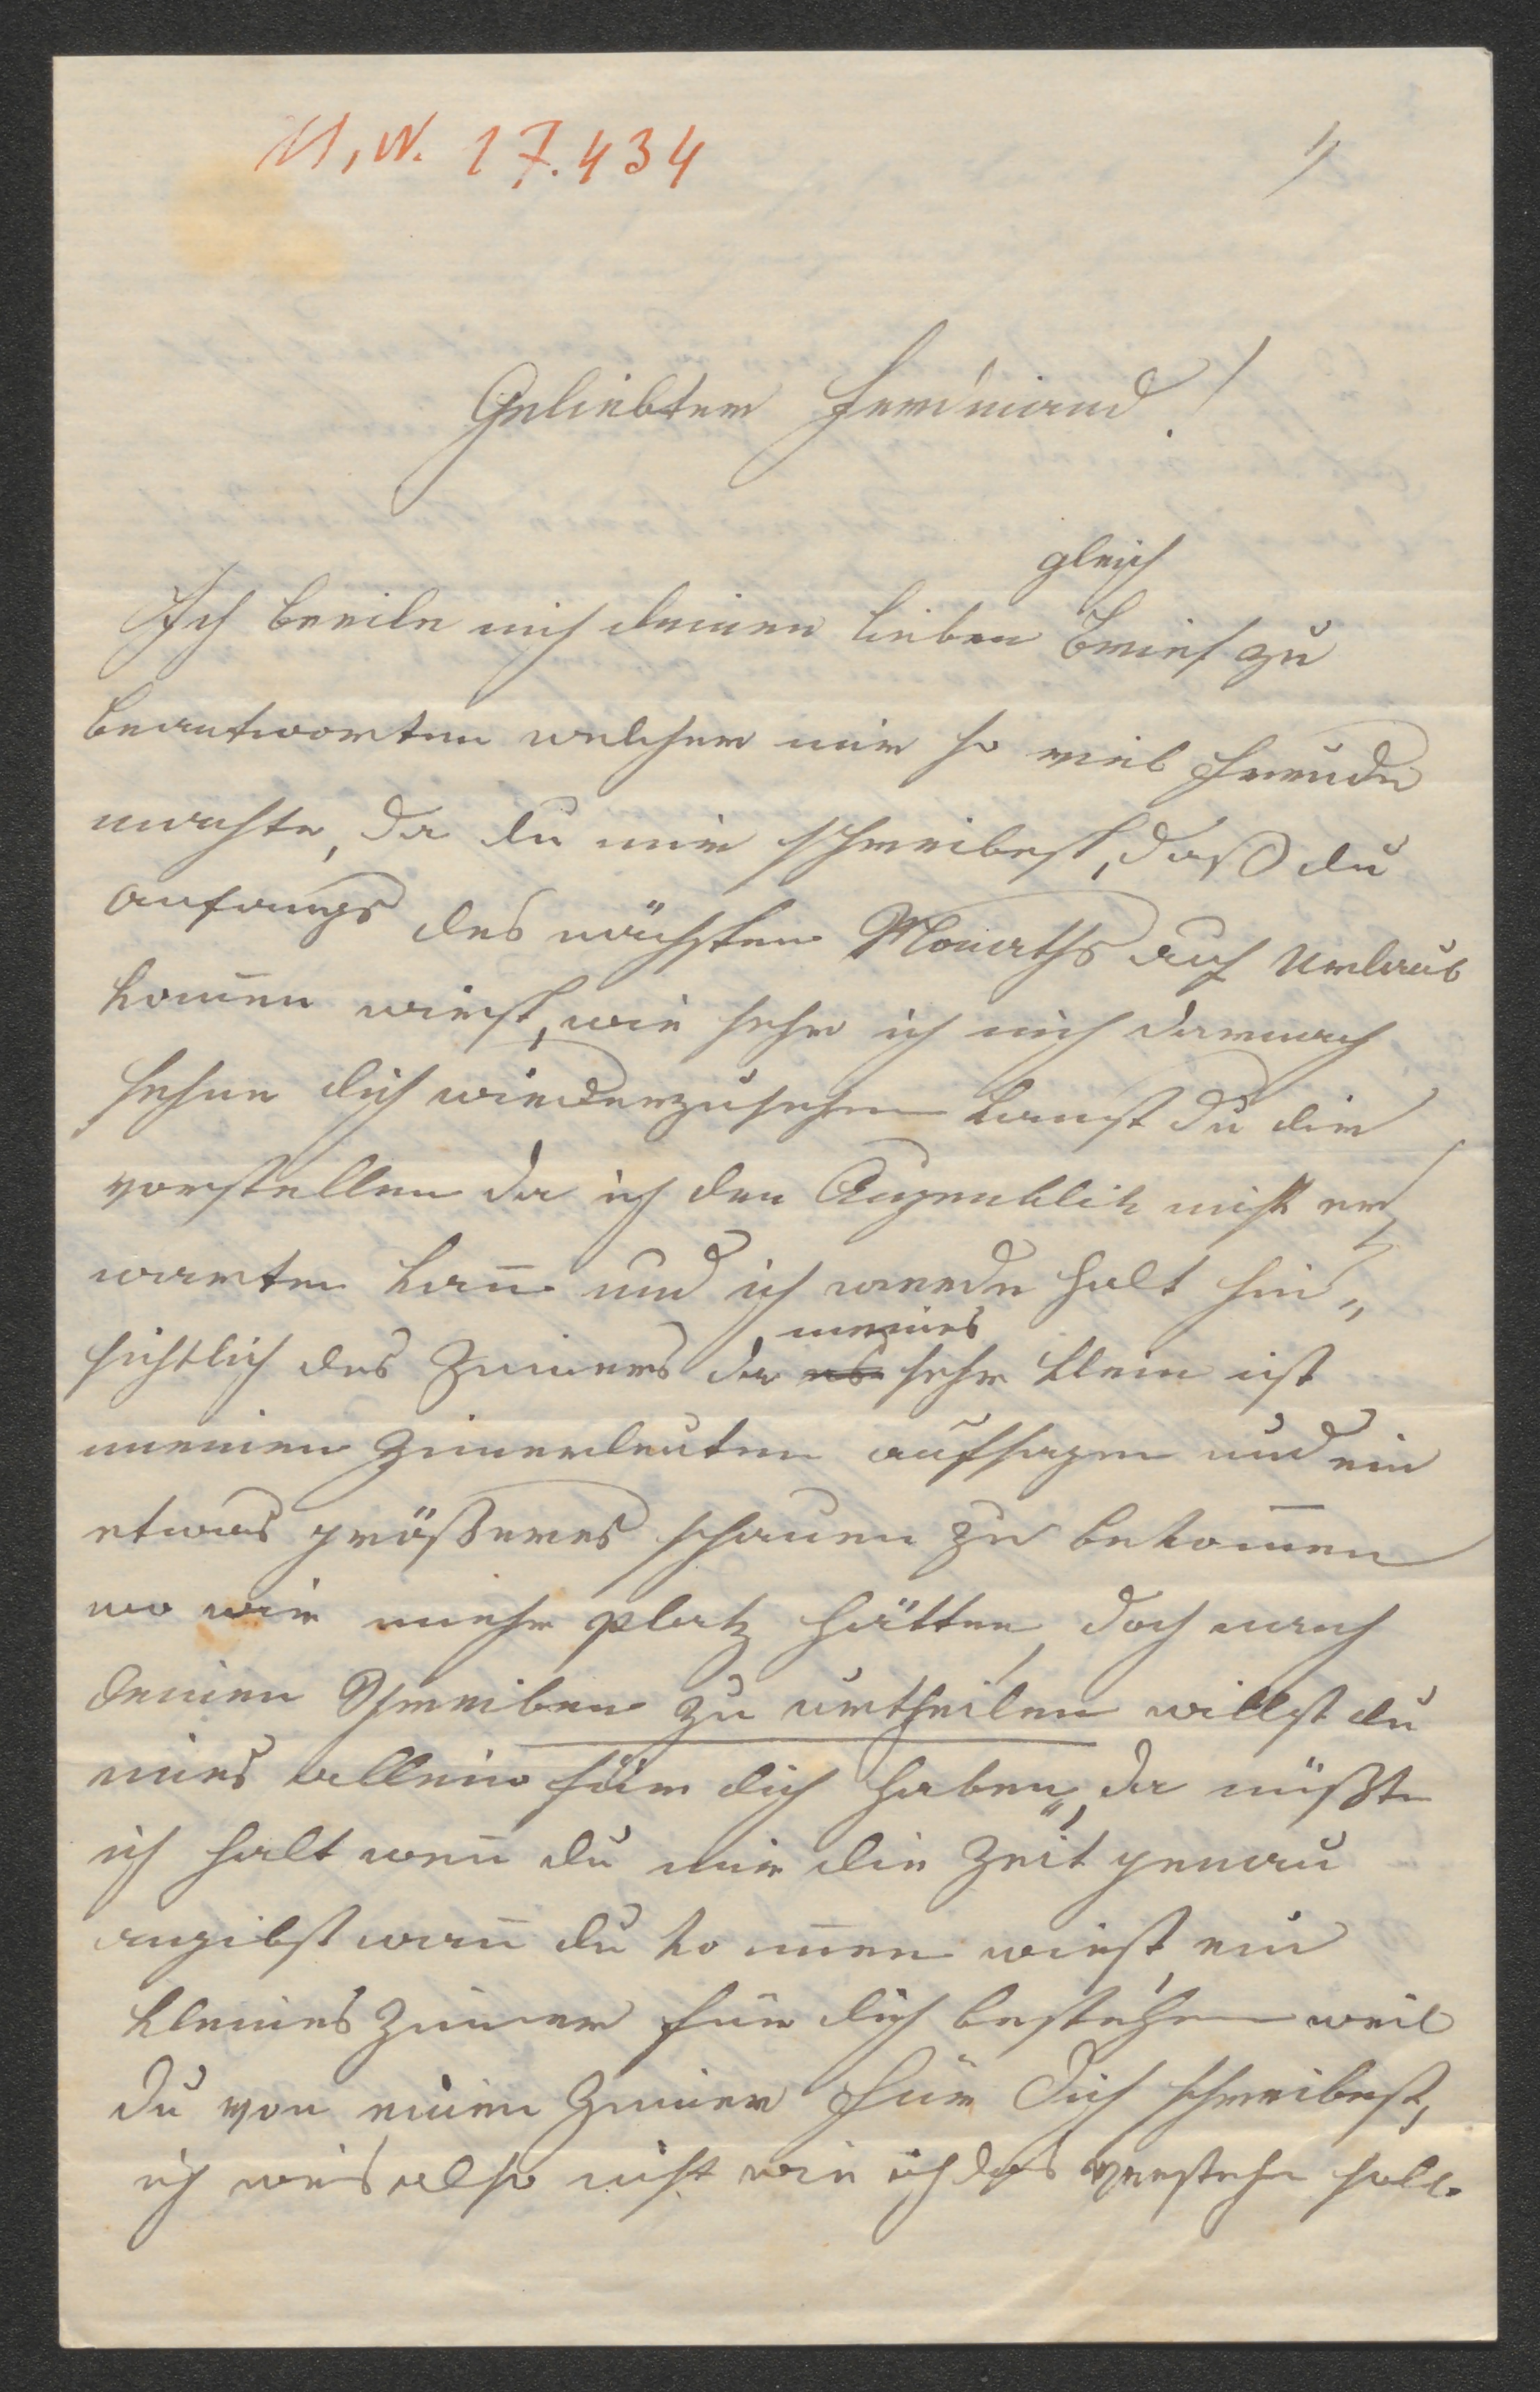 M, N. 17.434
1/
Geliebter Ferdinand!
gleich
Ich beeile mich deinen lieben Brief zu
beantworten welcher mir so viel Freude
machte, da du mir schreibest, daß du
anfangs des nächsten Monaths auf Urlaub
kom̄en wirst, wie sehr ich mich darnach
sehne dich wiederzusehen kanst du dir
vorstellen da ich den Augenblik nicht er,
warten kan̄ und ich werde halt hin„
meines
sichtlich des Zim̄ers da es sehr klein ist
meinen Zim̄erleuten aufsagen und ein
etwas größeres schauen zu bekom̄en
wo wir mehr platz hätten, doch nach
deinen Schreiben zu urtheilen willst du
eines allein für dich haben, da müßte
ich halt wen̄ du mir die Zeit genau
angibst wan̄ du kom̄en wirst, ein
kleines Zim̄er für dich bestehen weil
du von einen Zim̄er für Dich schreibest,
ich weis also nicht wie ich das verstehe soll.